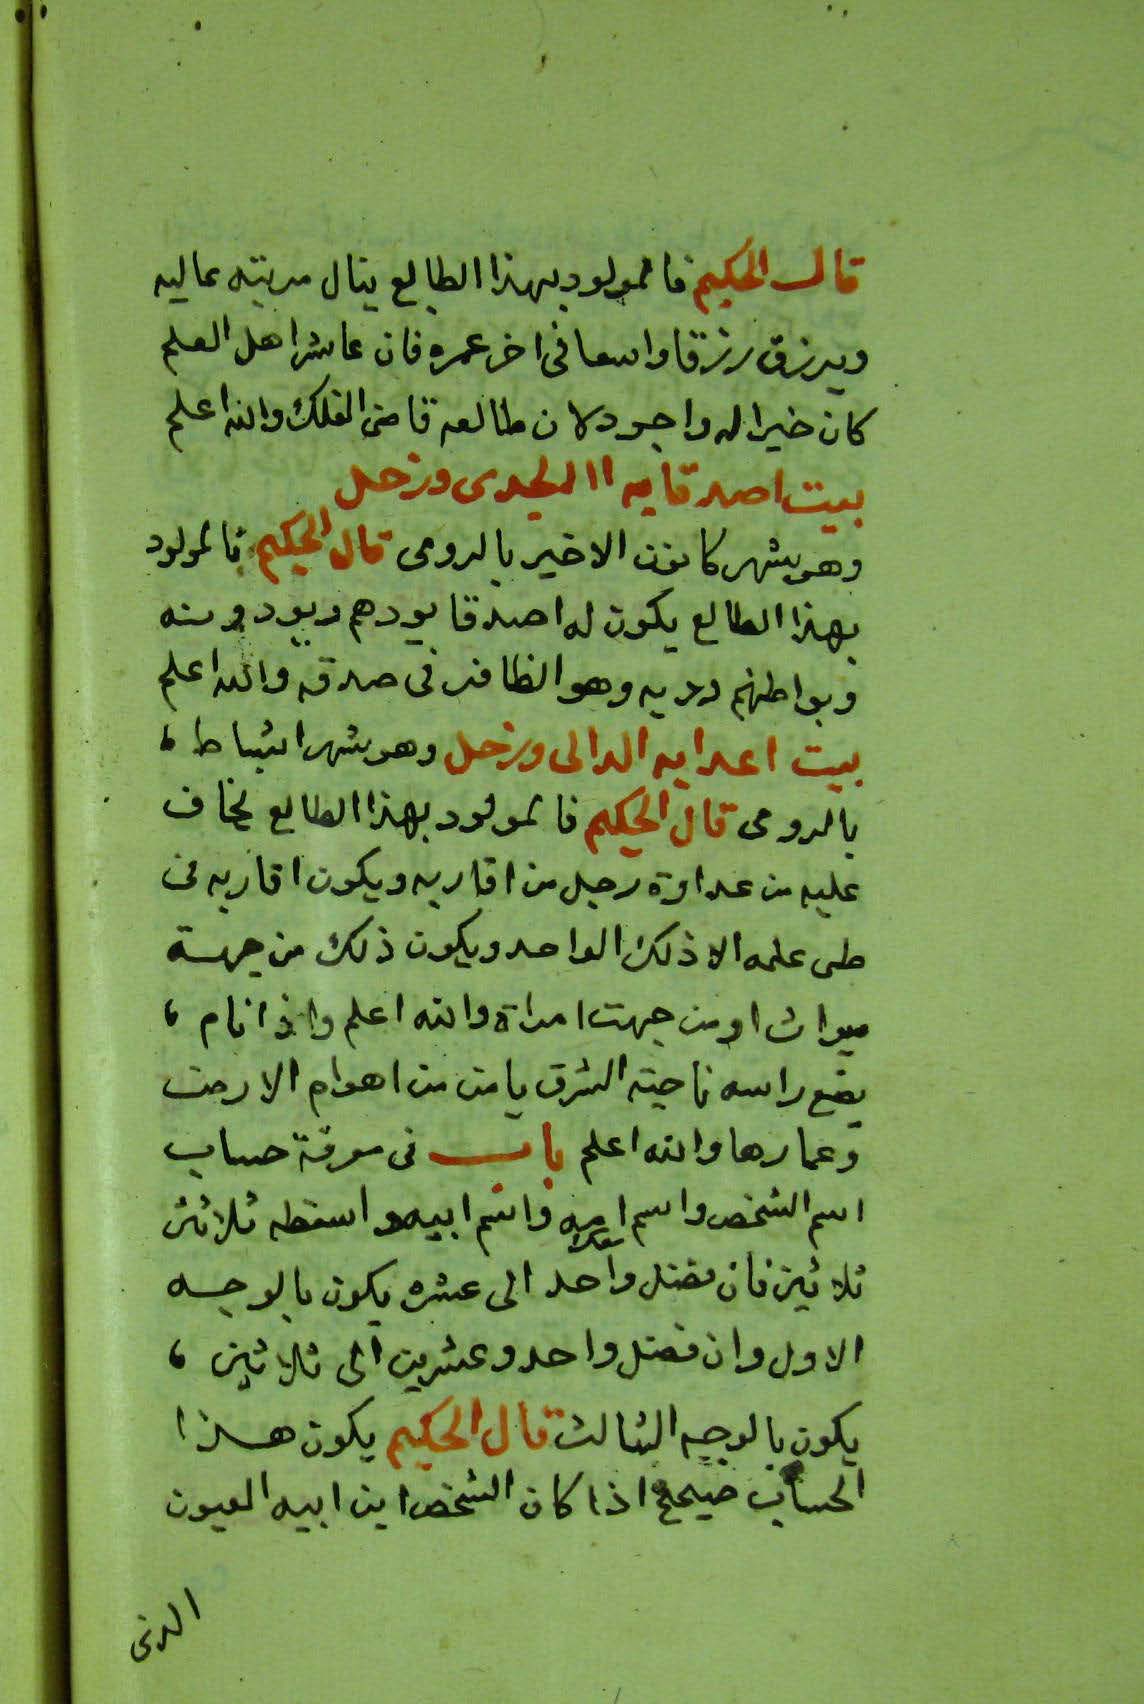 قال الحكيم فالمولود بهذا الطالع ينال مرتبته عاليه
ويرزق رزقا واسعا فى اخر عمره فان عاشر اهل العلم
كان خيرا له واجود لان طالعه قاضى الفلك والله اعلم
بيت اصدقايه الجدى وزحل
وهو شهر كانون الاخير بالرومى قال الحكيم فالمولود
بهذا الطالع يكون له اصدقا يودهم ويودونه
وبواطنهم رديه وهو الظافر فى صدقه والله اعلم
بيت اعدايه الدالى وزحل وهو شهر اشباط ،
بالرومى قال الحكيم فالمولود بهذا الطالع يخاف
عليه من عداوة رجل من اقاربه ويكون اقاربه فى
طى علمه الا ذلك الواحد ويكون ذلك من جهة
ميراث او من جهت امراة والله اعلم واذا نام ،
يضع راسه ناحيته الشرق يامن من اهوام الارض
وعمارها والله اعلم باب فى معرفة حساب
اسم الشخص واسم امه واسم ابيه واسقطه ثلاثين
ثلاثين فان فضل واحد الى عشره يكون بالوجه
الاول وان فضل واحد وعشرين الى ثلاثين ،
يكون بالوجه الثالث قال الحكيم يكون هذا
الحساب صحيح اذا كان الشخص ابن ابيه العيون
الذى